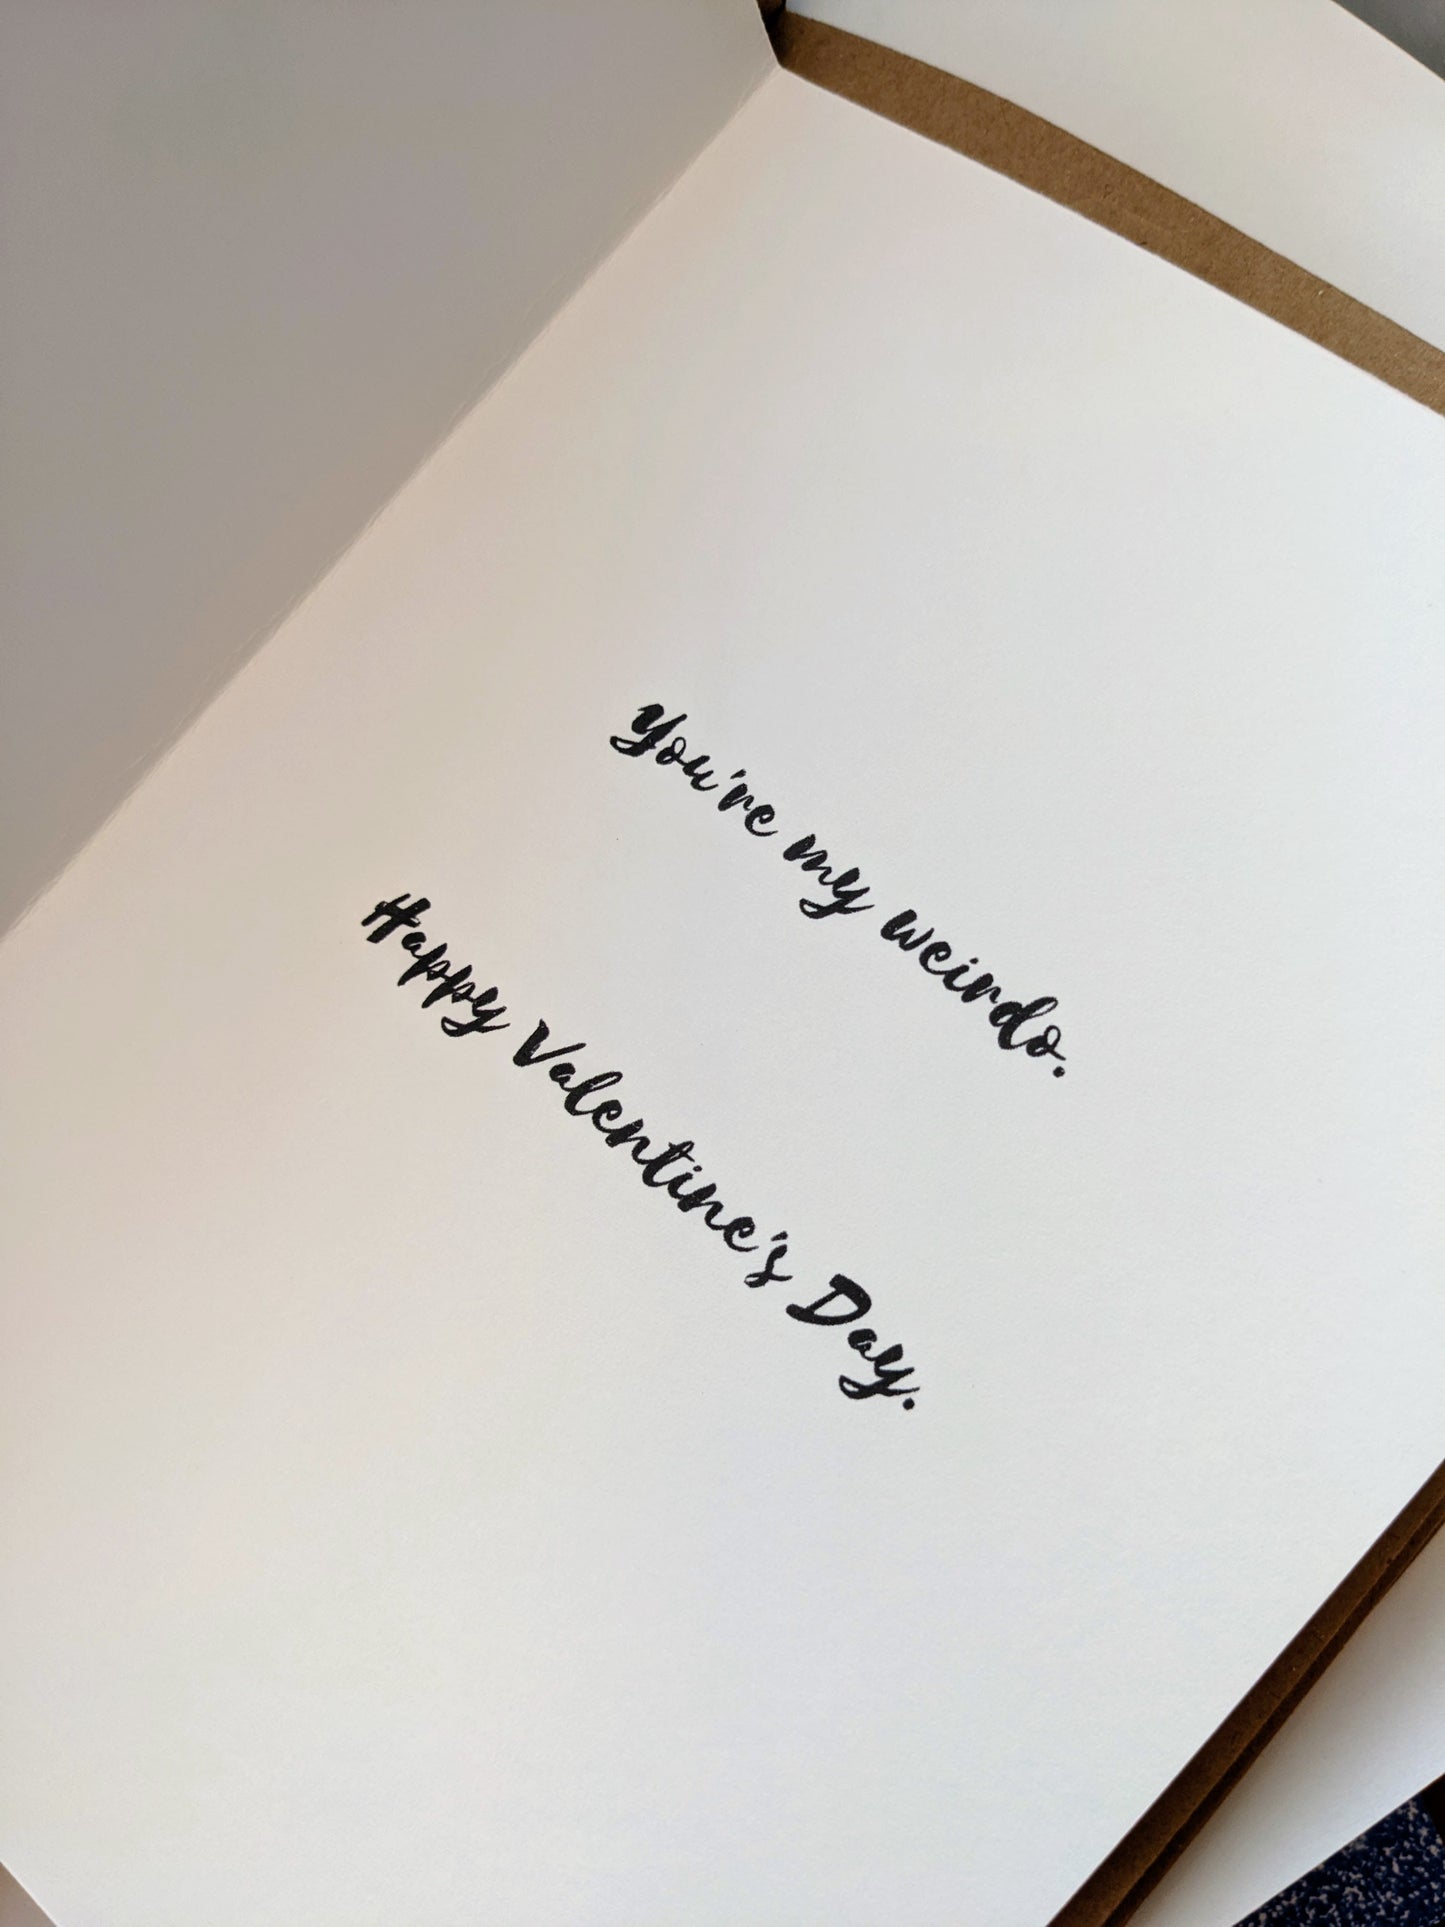 You're my weirdo.
Happy Valentine's Day.